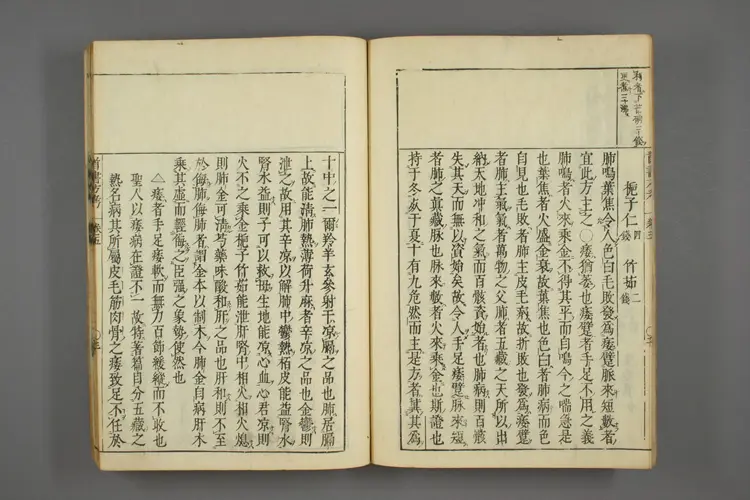 梔子仁四錢 竹茹二錢
肺鳴葉焦令人色白毛敗發為痿躄脈來短數者
宜此方主之〇痿猶萎也痿躄者手足不用之義
肺鳴者火來乘金不得其平而自鳴今之喘急是
也葉焦者火盛金衰故葉焦也色白者肺病而色
自見也毛敗者肺主皮毛病故折敗也發為痿躄
者肺主氣氣者萬物之父肺者五藏之天所以出
納天地冲和之氣而百骸資始者也肺病則百骸
失其天而無以資始矣故令人手足痿躄脈來短
者肺之真藏脈也脈來數者火來乘金也斯證也
持于冬死于夏十有九危然而主是方者冀其為
十中之一爾羚羊玄參射干凉膈之品也肺居膈
上故能清肺熱薄荷升麻者辛凉之品也金鬱則
泄之故用其辛凉以解肺中鬱熱柏皮能益腎水
腎水益則子可以救母生地能凉心血心君凉則
火不之乘金梔子竹茹能泄肝腎中相火相火熄
則肺金可清芍藥味酸和肝之品也肝和則不至
於侮肺侮肺者謂金本以制木今肺金自病肝木
乘其虛而輕侮之臣强之象勢使然也
△痿者手足痿軟而無力百節緩縱而不收也
聖人以痿病在證不一故特著篇目分五藏之
熱名病其所屬皮毛筋肉骨之痿致足不任於